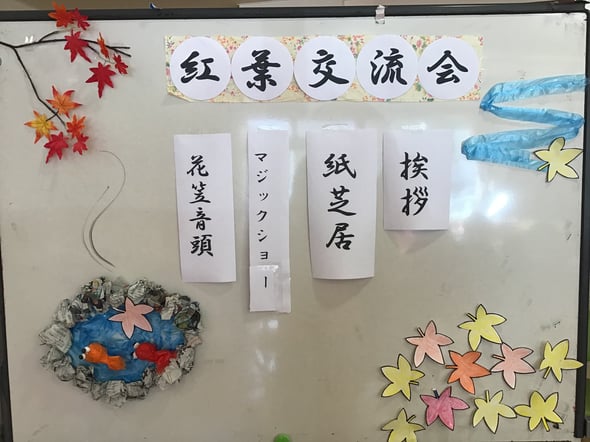 紅葉交流会
挨拶
紙芝居
マジックショー
花笠音頭